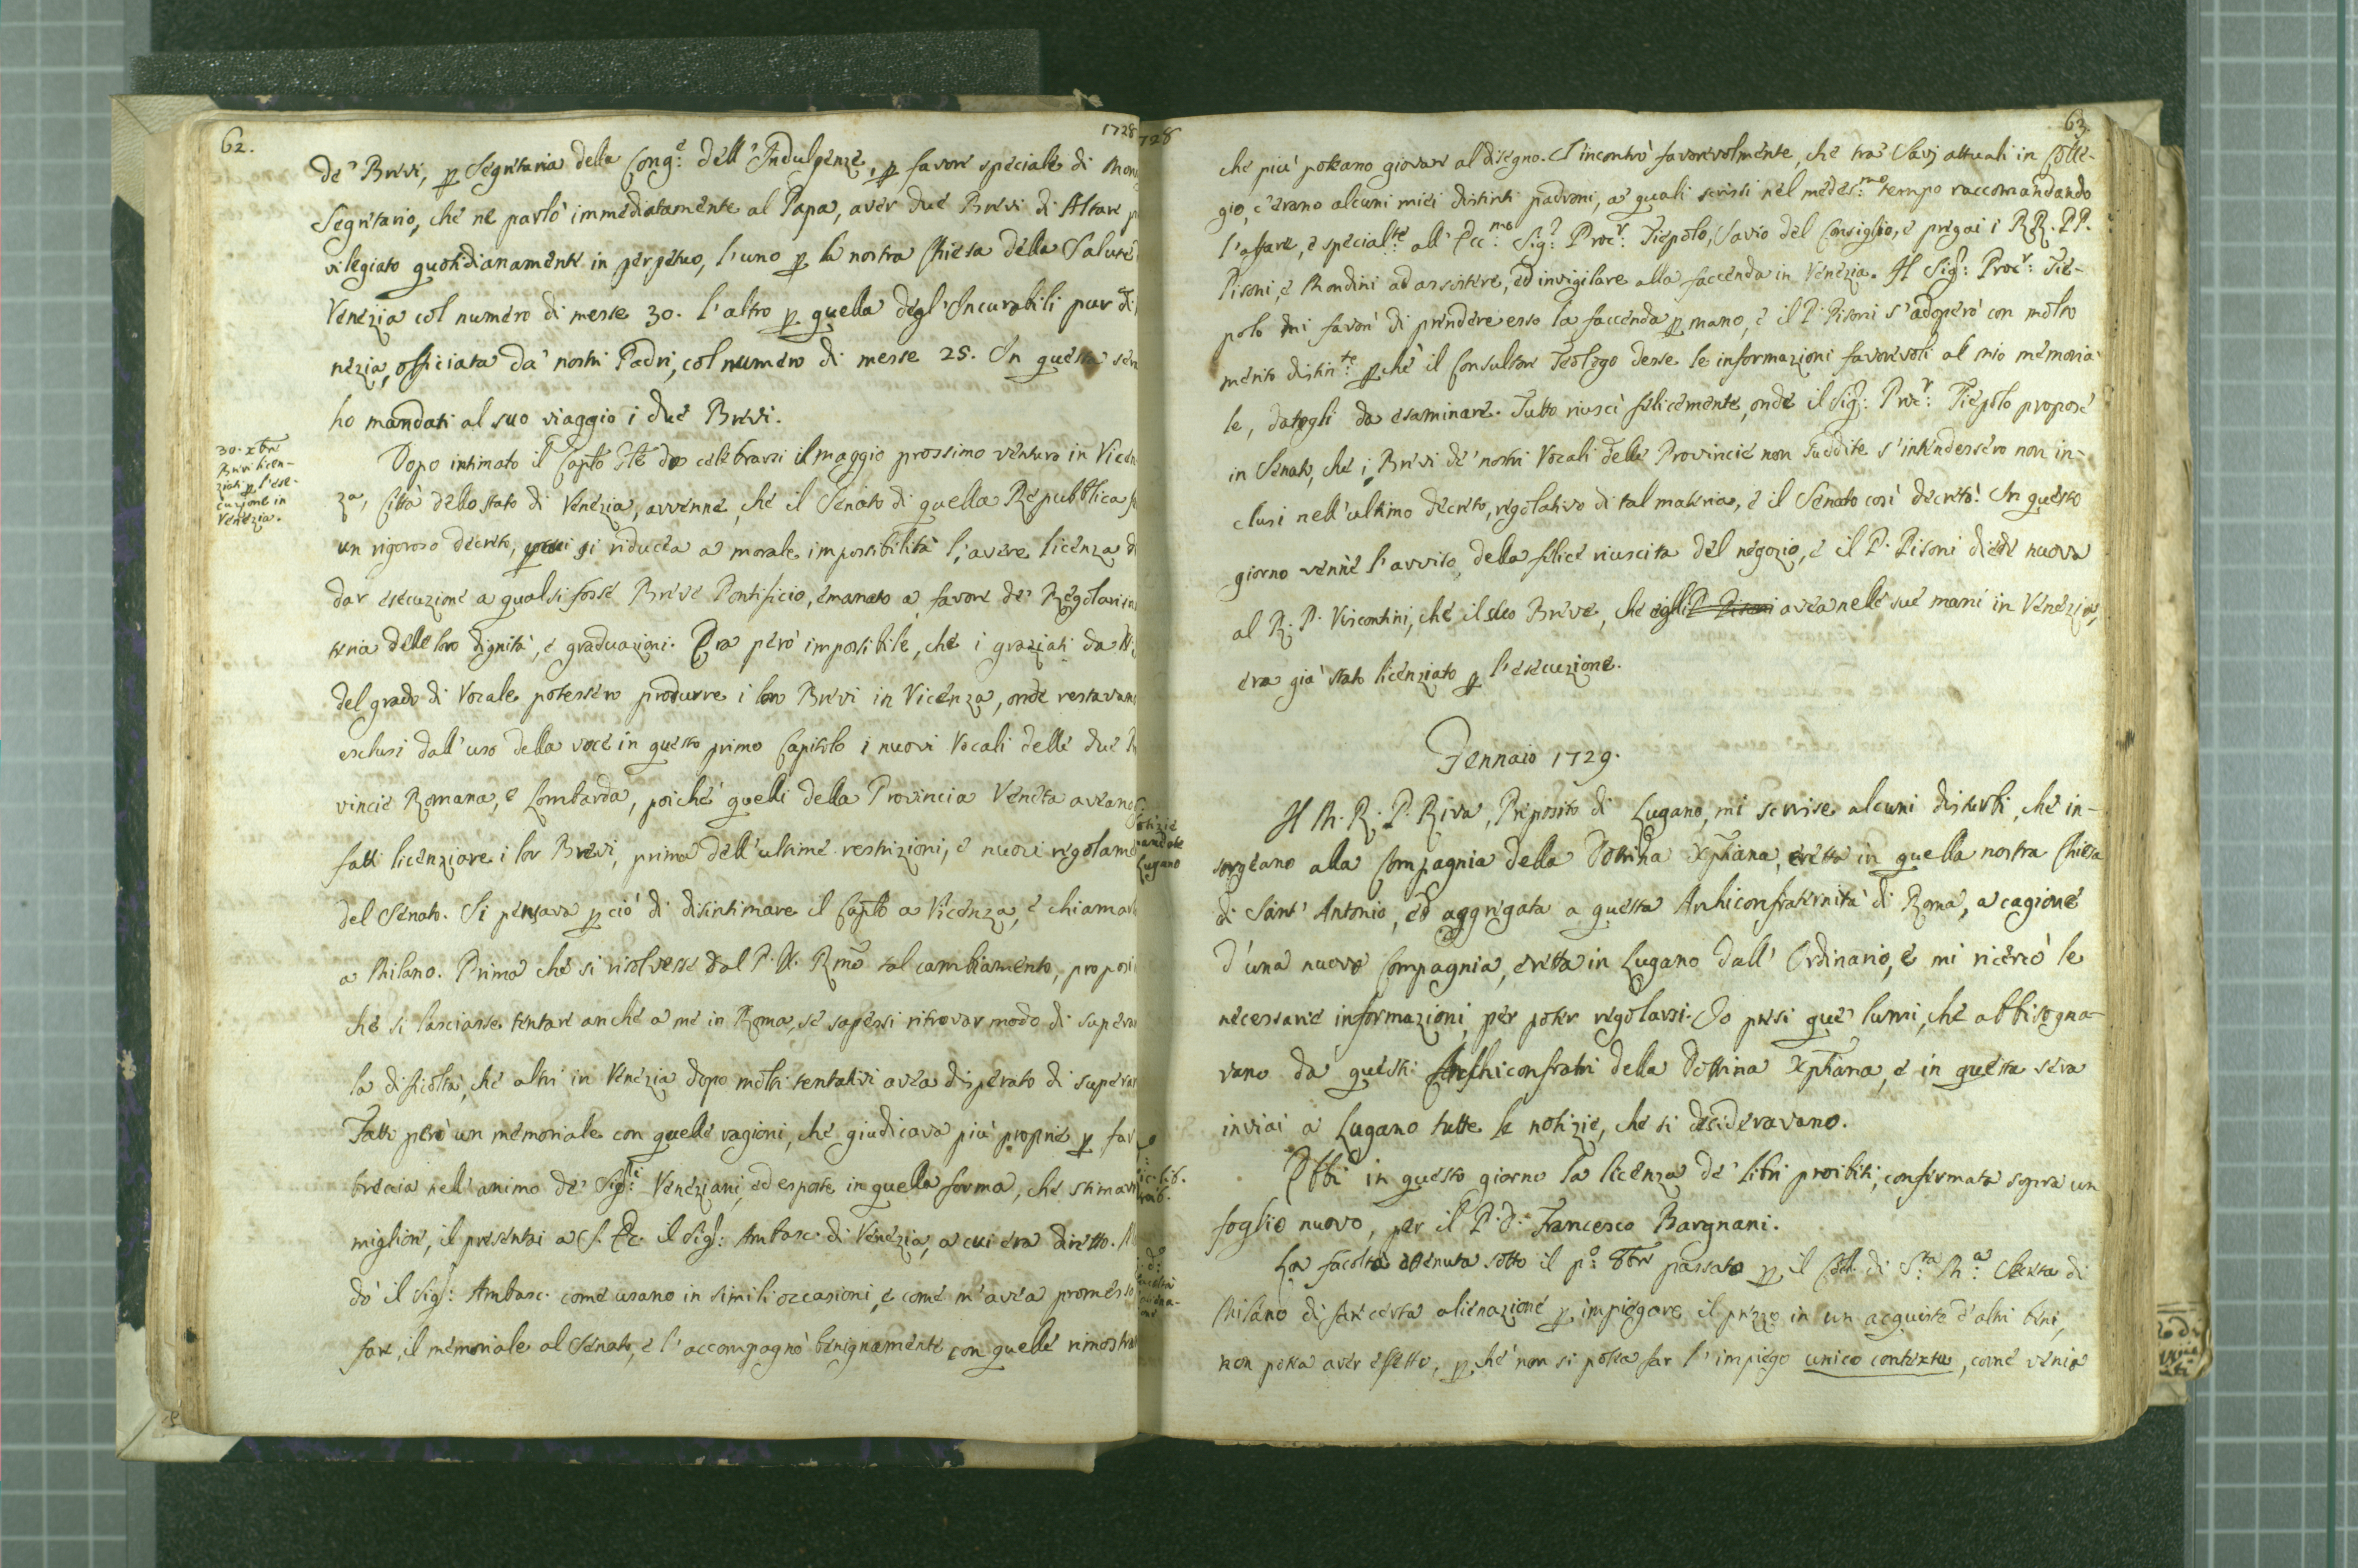 62.
1728
de' Brevi, p Segretaria della Cong.e dell'Indulgenze, p favore speciale di Mon
Segretario, che ne parlò immediatamente al Papa, aver due Brevi di Altare p
vilegiato quotidianamente in perpetuo, l'uno p la nostra Chiesa della Salute
Venezia col numero di messe 30. l'altro p quella degl'Incurabili pur di
nezia, officiata da' nostri Padri, col numero di messe 25. In questa ser
ho mandati al suo viaggio i due Brevi.
30. xbre
Brevi licen-
ziati p l'ese-
cuzione in
Venezia.
Dopo intimato il Caplo Gle da celebrarsi il maggio prossimo venturo in Vicen
za, Città dello stato di Venezia, avvenne, che il Senato di quella Repubblica f
un rigoroso decreto, si riducea a morale impossibilità l'avere licenza d
dar esecuzione a qualsifosse Breve Pontificio, emanato a favore de' Regolari
teria delle loro dignità, e graduazioni. Era però impossibile, che i graziati da
del grado di Vocale potessero produrre i loro Brevi in Vicenza, onde restavan
esclusi dall'uso della voce in questo primo Capitolo i nuovi Vocali delle due
vincie Romana, e Lombarda, poichè quelli della Provincia Veneta aveano
fatti licenziare i lor Brevi, prima dell'ultime restrizioni, e nuovi regolame
del Senato. Si pensava p ciò di disintimare il Caplo a Vicenza, e chiamar
a Milano. Prima che si risolvesse dal P. N. Rmo tal cambiamento, proposi
che si lasciasse tentare anche a me in Roma, se sapessi ritrovar modo di supera
la dificoltà, che altri in Venezia dopo molti tentativi avea disperato di supera
Fatto però un memoriale con quelle ragioni, che giudicava più proprie p far
breccia nell'animo de' Sig.ri Veneziani, ed esposte in quella forma, che stimava
migliore, il presentai a S. Ec. il Sig.r Ambasc. di Venezia, a cui era diretto.
dò il Sig.r Ambasc. come usano in simili occasioni, e come m'avea promesso
fare, il memoriale al Senato, e l'accompagnò benignamente con quelle rimostra
728
63.
che più poteano giovare al disegno. S'incontrò favorevolmente, che tra' Savj attuali in Colle-
gio, c'erano alcuni miei distinti padroni, a' quali scrissi nel medes.mo tempo raccomandando
l'affare, e special.te all'Ecc.mo Sig.r Proc.r Tiepolo, Savio del Consiglio, e pregai i RR. PP.
Pisoni, e Mondini ad assistere, ed invigilare alla faccenda in Venezia. Il Sig.r Proc.r Tie-
polo mi favorì di prendere esso la faccenda p mano, e il P. Pisoni s'adoperò con molto
merito distin.te pchè il Consultore Teologo desse le informazioni favorevoli al mio memoria-
le, datogli da esaminare. Tutto riuscì felicemente, onde il Sig.r Proc.r Tiepolo propose
in Senato, che i Brevi de' nostri Vocali delle Provincie non suddite s'intendessero non in-
clusi nell'ultimo decreto, regolativo di tal materia, e il Senato così decretò. In questo
giorno venne l'avviso della felice riuscita del negozio, e il P. Pisoni diede nuova
al R. P. Viscontini, che il suo Breve, che egli P. Pisoni avea nelle sue mani in Venezia,
era già stato licenziato p l'esecuzione.
Gennaio 1729.
otizie
mandate
Lugano
Il M. R. P. Riva, Preposito di Lugano, mi scrisse alcuni disturbi, che in-
sorgeano alla Compagnia della Dottrina Xpiana, eretta in quella nostra Chiesa
di Sant'Antonio, ed aggregata a questa Archiconfraternità di Roma, a cagione
d'una nuova Compagnia, eretta in Lugano dall'Ordinario, e mi ricercò le
necessarie informazioni per poter regolarsi. Io presi que' lumi, che abbisogna-
vano da questi Archiconfratri della Dottrina Xpiana, e in questa sera
inviai a Lugano tutte le notizie, che si desideravano.
ic. lib.
roib.
Ebbi in questo giorno la licenza de' libri proibiti, confermata sopra un
foglio nuovo, per il P. D. Francesco Bargnani.
La facoltà ottenuta sotto il p.o 8bre passato p il Coll. di S.ta M.a Segreta di
Milano di fare certa alienazione p impiegare il prezzo in un acquisto d'altri beni,
non potea aver effetto, pchè non si potea far l'impiego unico contextu, come venia